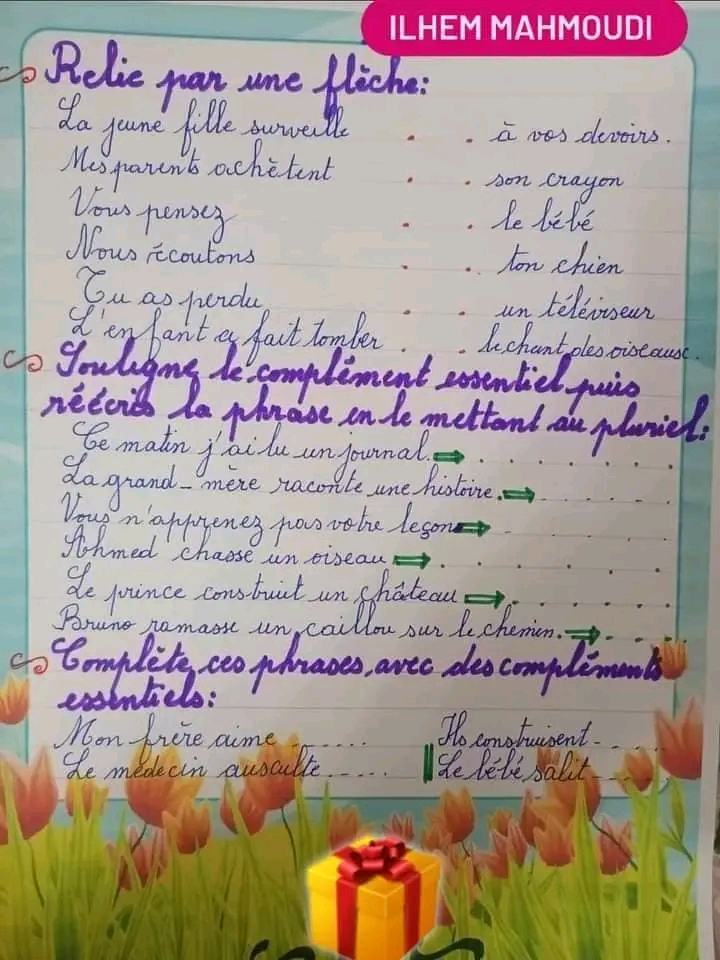 ILHEM MAHMOUDI
Relie par une flèche:
La jeune fille surveille . . à vos devoirs.
Mes parents achètent . . son crayon
Vous pensez . . le bébé
Nous écoutons . . ton chien
Tu as perdu . . un téléviseur
L'enfant a fait tomber . . le chant des oiseaux.
Souligne le complément essentiel puis
réécris la phrase en le mettant au pluriel:
Ce matin j'ai lu un journal. ➡ . . . . . .
La grand-mère raconte une histoire. ➡ . . . . .
Vous n'apprenez pas votre leçon ➡ . . . . .
Ahmed chasse un oiseau ➡ . . . . . .
Le prince construit un château ➡ . . . . . .
Bruno ramasse un caillou sur le chemin. ➡ . . . .
Complète ces phrases avec des compléments
essentiels:
Mon frère aime ...... Ils construisent ......
Le médecin ausculte ..... Le bébé salit .....